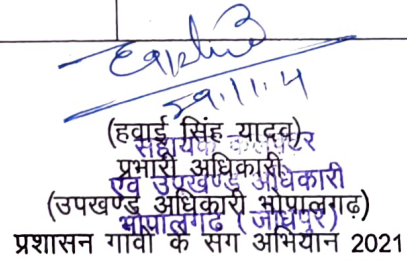 29.11.4
(हवाई सिंह यादव)
सहायक कलक्टर
प्रभारी अधिकारी
एवं उपखण्ड अधिकारी
(उपखण्ड अधिकारी भोपालगढ़)
भोपालगढ़ (जोधपुर)
प्रशासन गांवों के संग अभियान 2021